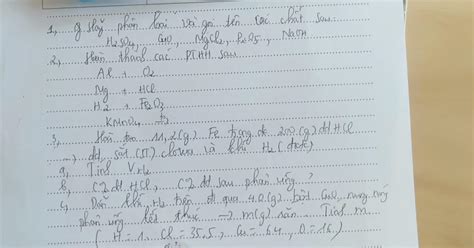 1, Hãy phân loại và gọi tên các chất sau:
H2SO4, CuO, MgCl2, P2O5, NaOH
2, Hoàn thành các PTHH sau
Al + O2
Mg + HCl
H2 + Fe2O3
KMnO4 to
3, Hòa tan 11,2(g) Fe trong 200(g) dd HCl
→ dd sắt (II) clorua và khí H2 (đktc)
a, Tính VH2
b, C% dd HCl, C% dd sau phản ứng?
c, Dẫn khí H2 trên đi qua 40(g) bột CuO, nung nóng
phản ứng kết thúc → m(g) rắn. Tính m
(H = 1, Cl = 35,5, Cu = 64, O = 16)